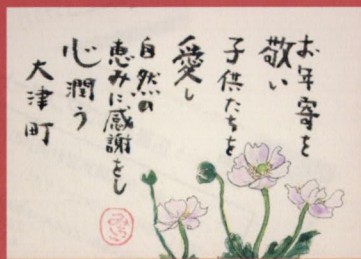 お年寄を
敬い
子供たちを
愛し
自然の
恵みに感謝をし
心潤う
大津町